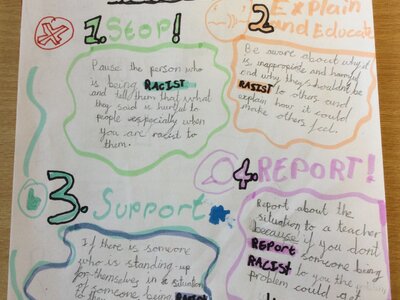 1. Stop!
Pause the person who
is being RACIST
and tell them that what
they said is hurtful to
people especially when
you are racist to
them.
2 Explain
and Educate
Be aware about why it
is inappropriate and harmful
and why they shouldn't be
RASIST to others and
explain how it could
make others feel.
3. Support
If there is someone
who is standing up
for themselves in a situation
of someone being
4. REPORT!
Report about the
situation to a teacher
because if you don't
REPORT someone being
RACIST to you the
problem could get